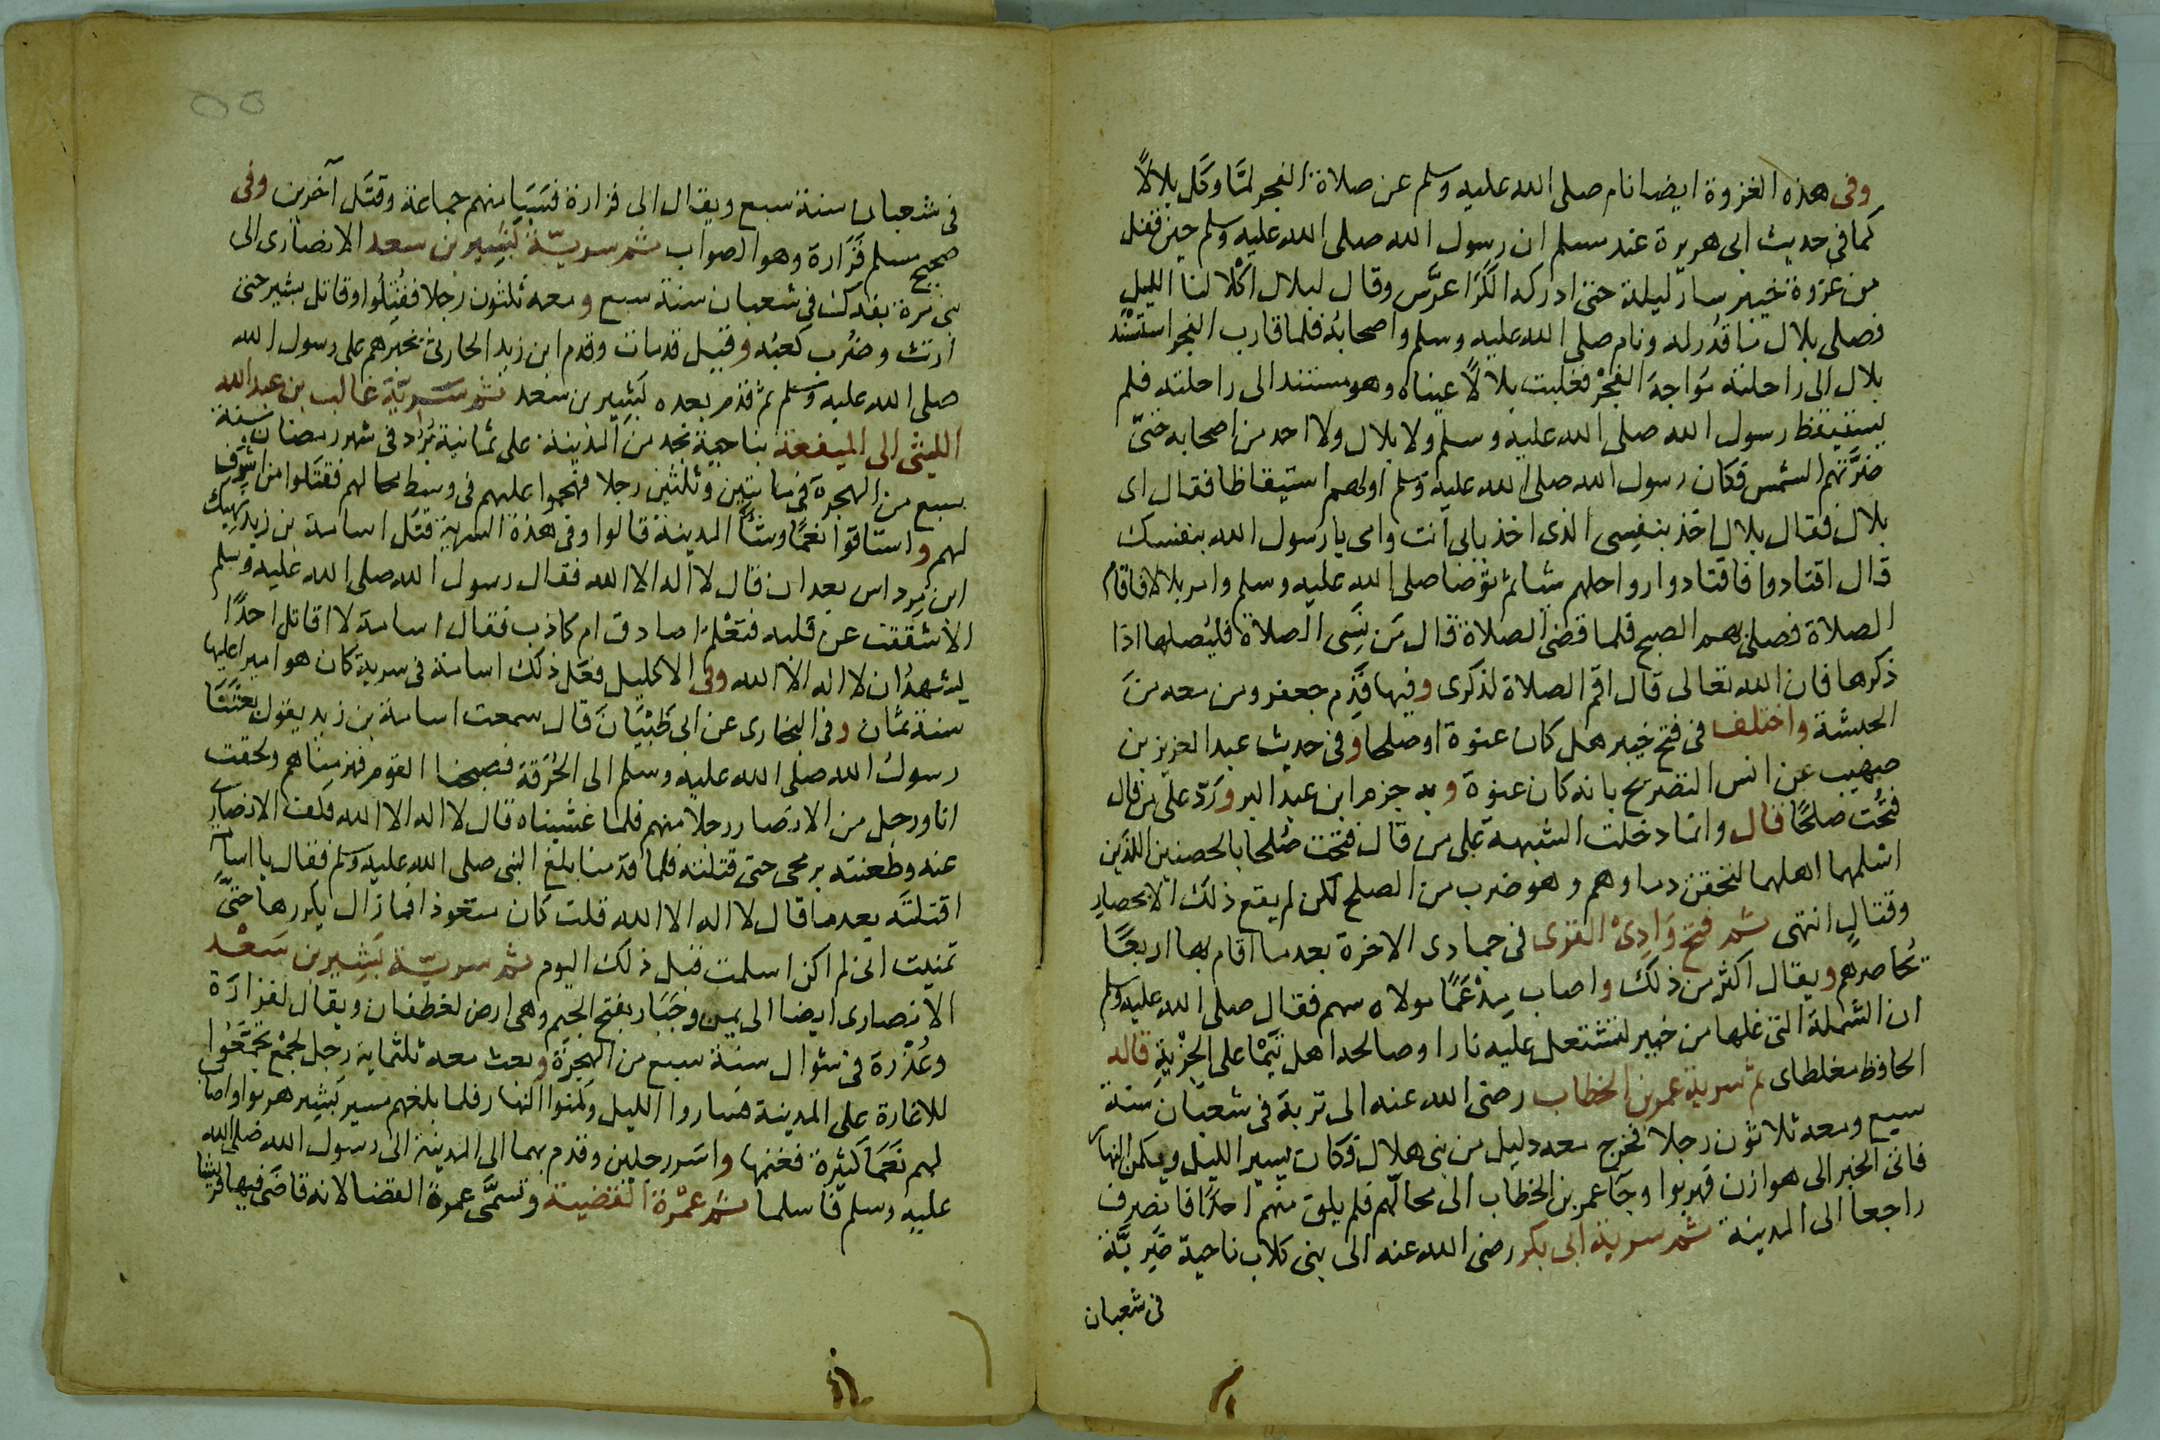 وفى هذه الغزوة ايضا نام صلى الله عليه وسلم عن صلاة الفجر لمّا وكّل بلالاً
كما في حديث ابى هريرة عند مسلم ان رسول الله صلى الله عليه وسلم حين قفل
من غزوة خيبر سار ليلة حتى ادركه الكَرَا عرَّس وقال لبلال اكْلا لنا الليل
فصلى بلال ما قدّر له ونام صلى الله عليه وسلم واصحابُه فلما قارب الفجر استَنَد
بلال الى راحلته مُواجهَ الفجْر فغلبت بلالاً عيناه وهو مستند الى راحلته فلم
يستيقظ رسول الله صلى الله عليه وسلم ولا بلال ولا احد من اصحابه حتىّ
ضرَبَتهم الشمس فكان رسول الله صلى الله عليه وسلم اولهم استيقاظا فقال اى
بلال فقال بلال اخذ بنفسِى الذى اخذ بابى أنت وامى يا رسول الله بنفسك
قال اقتادوا فاقتادوا رواحلهم شيا ثم توضا صلى الله عليه وسلم وامر بلالا فاقام
الصلاة فصلى بهم الصبح فلما قضى الصلاة قال مَن نَسِى الصلاة فليُصلها اذا
ذكرها فان الله تعالى قال اقم الصلاة لذكرى وفيها قَدِم جعفر ومن معه منَ
الحبشة واختلف فى فتح خيبر هل كان عنوة او صلحا وفى حديث عبد العزيز بن
صهيب عن انس التصريح بانه كان عنوَةَ وبه جزم ابن عبد البر ورَدّ على من قال
فتُحت صلحًا قال وانما دخلت الشبهة على من قال فتحت صُلحا بالحصنين اللذَين
اسْلمها اهلهما لتحقن دماوهم وهو ضرب من الصلح لكن لم يقع ذلك الا بحصار
وقتالٍ انتهى ثم فتح وَادِىْ القرى فى جمادى الاخرة بعدما اقام بها اربعًا
يُحاصرهم ويقال اكثر من ذلك واصاب مِدْعَمًا مولاه سهم فقال صلى الله عليه وسلم
ان الشملة التى غلها من خيبر لتشتعل عليه نارا وصالحه اهل تَيْمَا على الجِزْيةِ قاله
الحافظ مغلطاى ثم سرية عمر بن الخطاب رضى الله عنه الى تربة فى شعبان سنة
سبع ومعه ثلاثون رجلا فخرج معه دليل من بنى هلال وكان يسير الليل ويكمن النهار
فاتى الخبر الى هوازن فهربوا وجا عمر بن الخطاب الى محالّهم فلم يلق منهم احدًا فانصرف
راجعا الى المدينة ثم سرية ابى بكر رضى الله عنه الى بنى كلاب ناحية ضَرِيَّة
فى شعبان
فى شعبان سنة سبع ويقال الى فزارة فسَبَيَا منهم جماعة وقتَل آخرين وفى
صحيح مسلم فَزَارة وهو الصواب ثم سريّة بَشِير بن سعد الانصارى الى
بنى مرة بفدكَ فى شعبان سنة سبع ومعه ثلثون رجلا فقُتِلوا وقاتل بشير حتى
ارتث وضُرب كعبُه وقيل قد مات وقدم ابن زيد الحارثى بخبرهم على رسول الله
صلى الله عليه وسلم ثم قدم بعده بَشِير بن سعد ثم سَرِيّة غالب بن عبد الله
الليثى الى الميفعة بناحية نجد من المدينة على ثمانية بُرُد فى شهر رمضان سنة
سبع من الهجرة فى مايتين وثلثين رجلا فهجموا عليهم فى وسط محالهم فقتَلوا من اشرف
لهم واستاقوا نعَمًا وشآ المدينة قالوا وفى هذه السرية قتَل اسامة بن زيد نَهِيك
ابن مِرداس بعد ان قال لا اله الا الله فقال رسول الله صلى الله عليه وسلم
الا شققت عن قلبه فتعْلم اصادق ام كاذب فقال اسامة لا اقاتل احدًا
يشهدُ ان لا اله الا الله وفى الاكليل فعَل ذلك اسامة فى سرية كان هو اميرا عليها
سنة ثمان وفى البخارى عن ابى ظَبْيَانَ قال سمعت اسامة بن زيد يقول بعثَنَا
رسول الله صلى الله عليه وسلم الى الحُرَقة فصبحنا القوم فهزمناهم ولحقت
انا ورجل من الانصار رجلاً منهم فلما غشيناه قال لا اله الا الله فكف الانصارى
عنه وطعنته برمحى حتى قتلته فلما قدمنا بلغ النبى صلى الله عليه وسلم فقال يا اسامة
اقتلتَه بعد ما قال لا اله الا الله قلت كان متعوذا فما زال يكررها حتىّ
تمنيت انى لم اكن اسلمت قبل ذلك اليوم ثم سريّة بَشِير بن سَعْد
الانصارى ايضا الى يمن وجَبَار بفتح الجيم وهى ارض لغطفان ويقال لفزارَة
وعُذْرة فى شوال سنة سبع من الهجرَة وبعث معه ثلثماية رجل لجمْع تجمَّعُوا
للاغارة على المدينة فساروا الليل وكمنوا النهار فلما بلغهم مسير بَشِير هربوا واصاب
لهم نَعَمًا كثيرة فغنمها واسَر رجلين وقدم بهما الى المدينة الى رسول الله صلى الله
عليه وسلم فاسلما ثم عمْرة القضية وتسمَّى عمرة القضا لانه قاضَى فيها قريشا